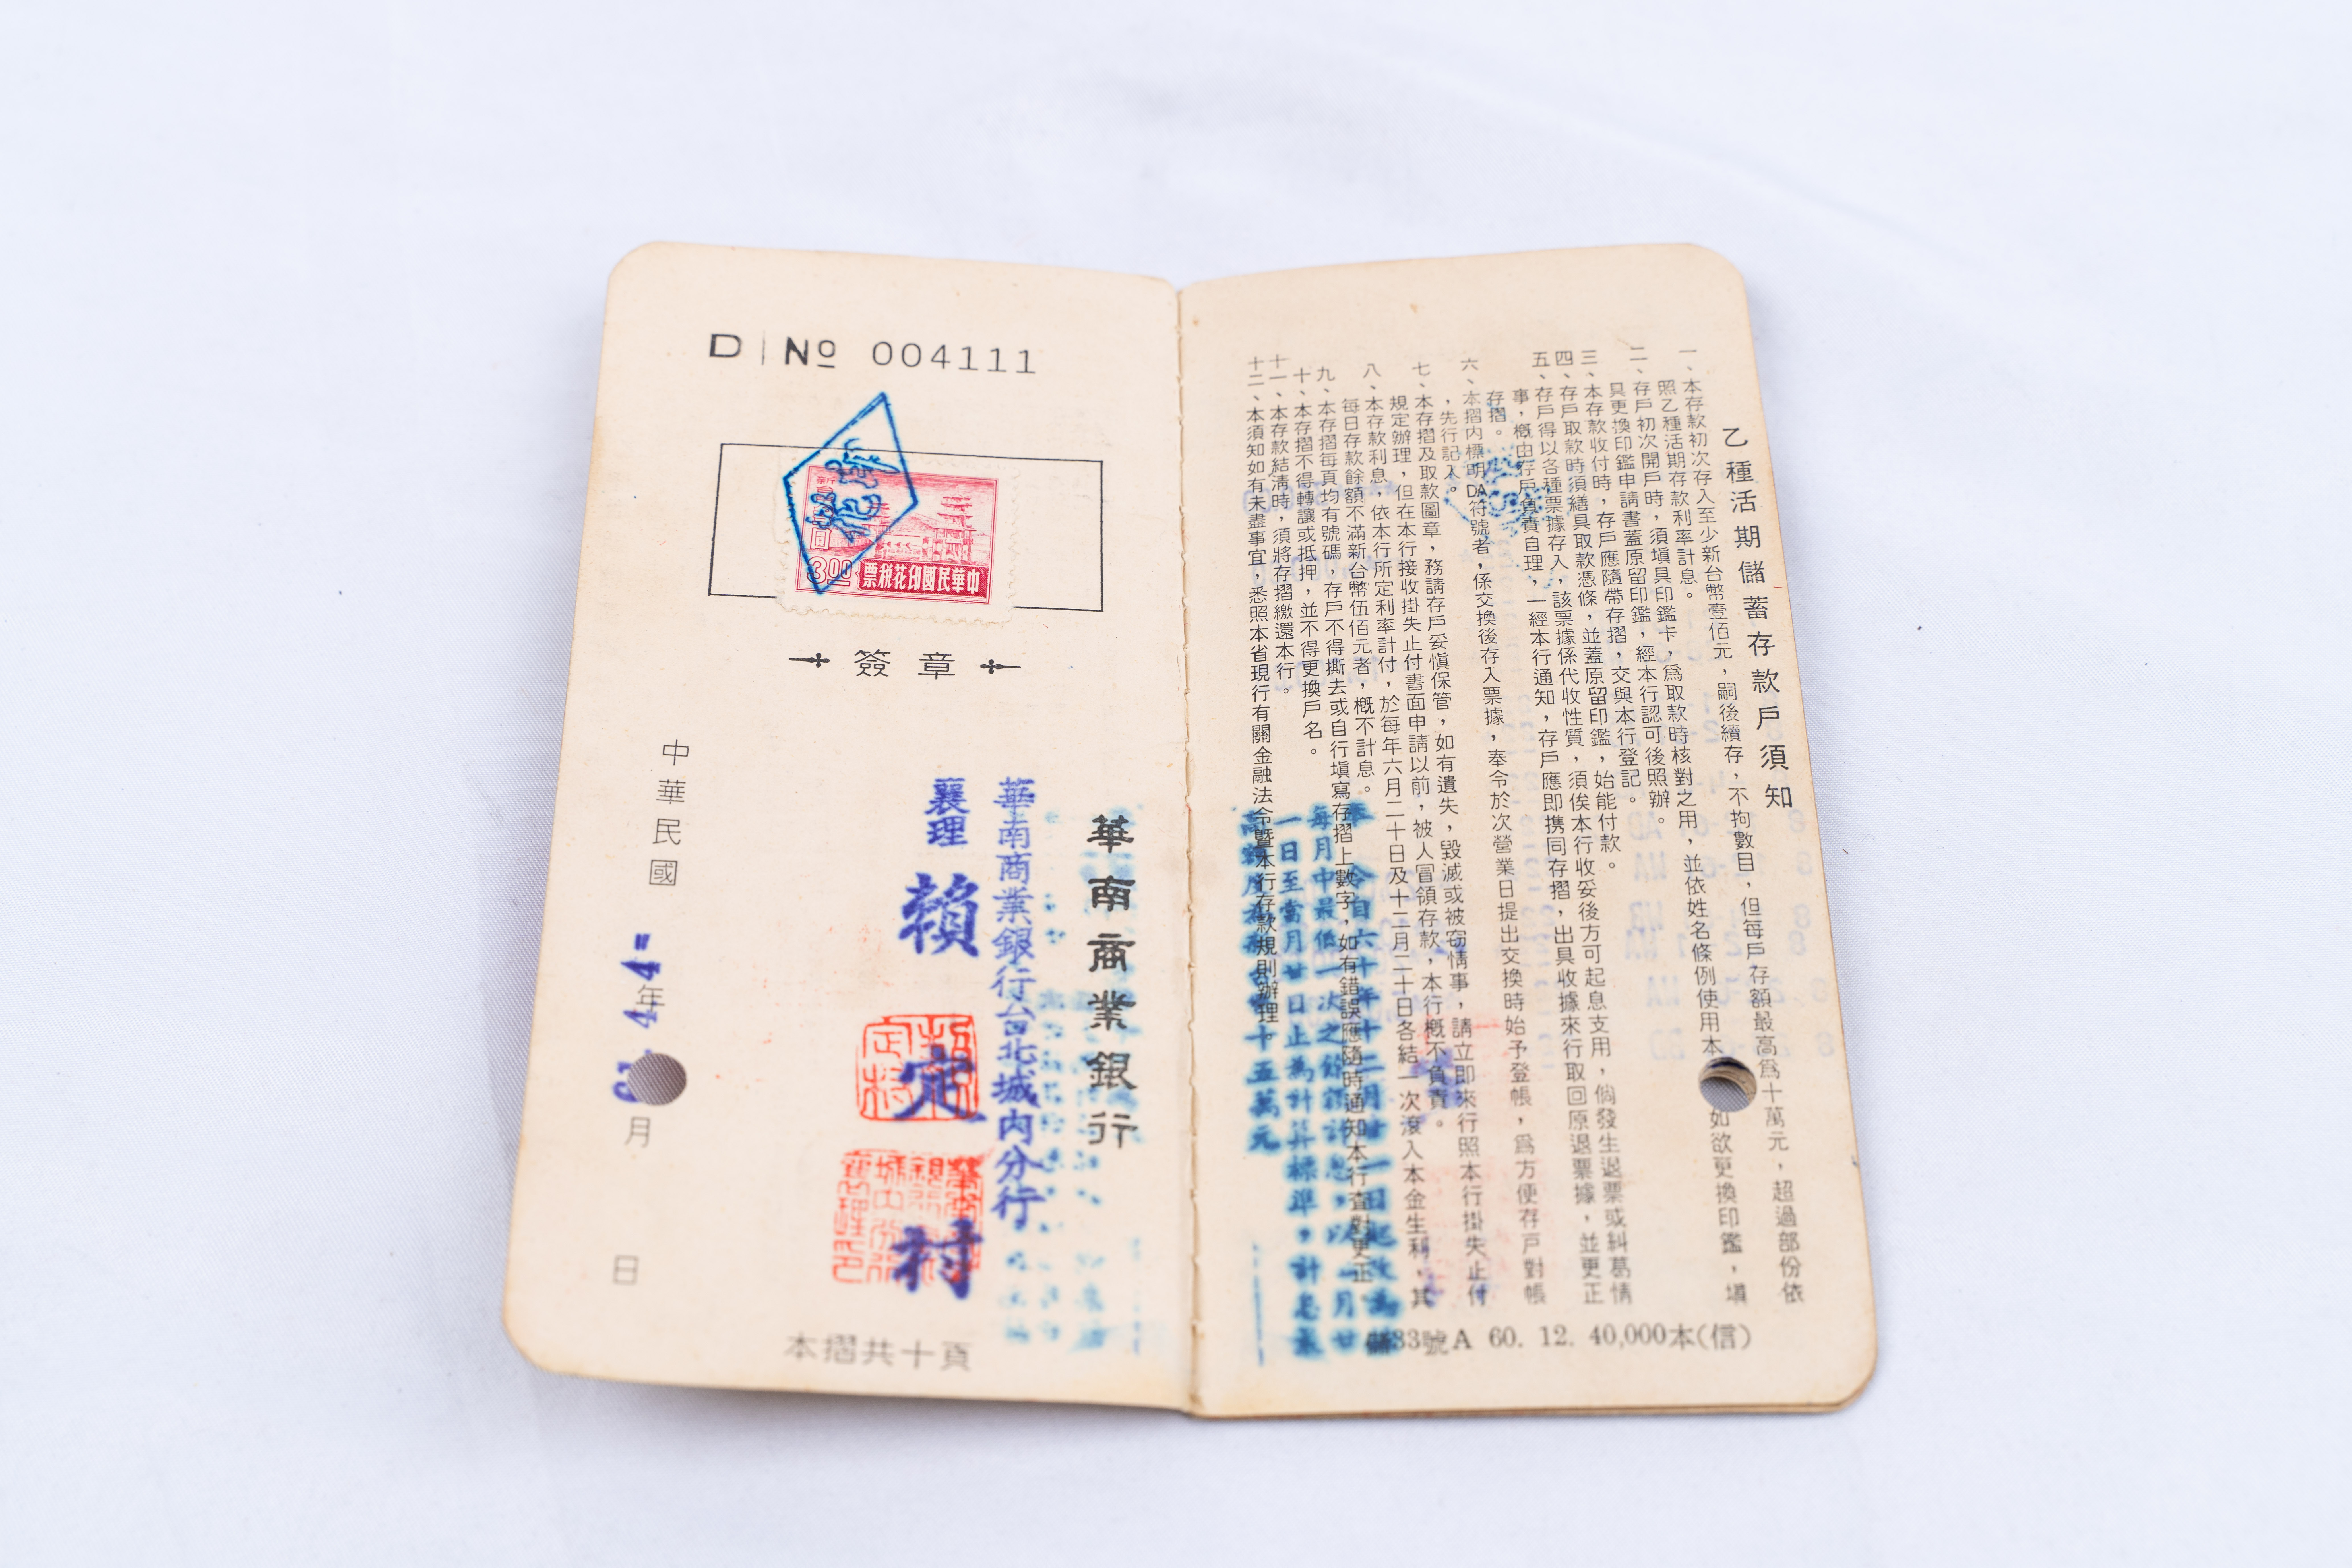 乙種活期儲蓄存款戶須知
一、本存款初次存入至少新台幣壹佰元，嗣後續存，不拘數目，但每戶存額最高爲十萬元，超過部份依
照乙種活期存款利率計息。
二、存戶初次開戶時，須塡具印鑑卡，爲取款時核對之用，並依姓名條例使用本
如欲更換印鑑，塡
具更換印鑑申請書蓋原留印鑑，經本行認可後照辦。
三、本存款收付時，存戶應隨帶存摺，交與本行登記。
四、存戶取款時須繕具取款憑條，並蓋原留印鑑，始能付款。
五、存戶得以各種票據存入，該票據係代收性質，須俟本行收妥後方可起息支用，倘發生退票或糾葛情
事，概由存戶負責自理，一經本行通知，存戶應即携同存摺，出具收據來行取回原退票據，並更正
存摺。
六、本摺內標明DA符號者，係交換後存入票據，奉令於次營業日提出交換時始予登帳，爲方便存戶對帳
，先行記入。
七、本存摺及取款圖章，務請存戶妥愼保管，如有遺失，毀滅或被窃情事，請立即來行照本行掛失止付
規定辦理，但在本行接收掛失止付書面申請以前，被人冒領存款，本行概不負責。
八、本存款利息，依本行所定利率計付，於每年六月二十日及十二月二十日各結一次滾入本金生利，其
每日存款餘額不滿新台幣伍佰元者，概不計息。
九、本存摺每頁均有號碼，存戶不得撕去或自行塡寫存摺上數字，如有錯誤應隨時通知本行查對更正。
十、本存摺不得轉讓或抵押，並不得更換戶名。
十一、本存款結淸時，須將存摺繳還本行。
十二、本須知如有未盡事宜，悉照本省現行有關金融法令暨本行存款規則辦理。
令自六十年十二月廿一日起改爲
每月中最低一次之餘額計息，以
一日至當月廿日止為計算標準，計息最
十五萬元
33號A 60. 12. 40,000本(信)
D No 004111
3.00
中華民國印花税票
簽章
華南商業銀行
華南商業銀行台北城內分行
襄理 賴定村
中華民國
年
月
日
本摺共十頁